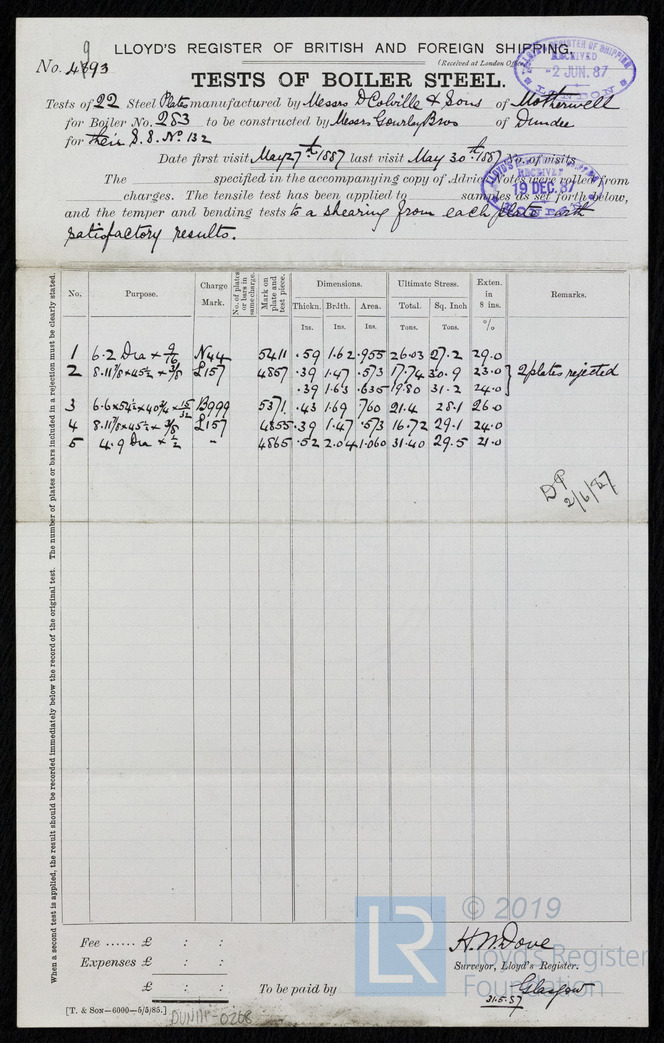 LLOYD'S REGISTER OF BRITISH AND FOREIGN SHIPPING,
9
No. 4893
(Received at London Office
LLOYD'S REGISTER OF SHIPPING
RECEIVED
2 JUN. 87
LONDON
TESTS OF BOILER STEEL.
Tests of 22 Steel Plates manufactured by Messrs D Colville & Sons of Motherwell
for Boiler No. 283 to be constructed by Messrs Gourlay Bros of Dundee
for their S.S. No 132
Date first visit May 27th 1887 last visit May 30th 1887 No. of visits
LLOYD'S
RECEIVED
19 DEC. 87
The specified in the accompanying copy of Advice Notes were rolled from
charges. The tensile test has been applied to samples as set forth below,
and the temper and bending tests to a shearing from each plate with
satisfactory results.
When a second test is applied, the result should be recorded immediately below the record of the original test. The number of plates or bars included in a rejection must be clearly stated.
No. Purpose. Charge Mark. No. of plates or bars in same charge. Mark on plate and test piece. Dimensions. Ultimate Stress. Exten. in 8 ins. Remarks.
Thickn. Br.dth. Area. Total. Sq. Inch
Ins. Ins. Ins. Tons. Tons. %
1 6.2 Dia × 9/16 N44 5411 .59 1.62 .955 26.03 27.2 29.0
2 8.11⅞ × 45½ × ⅜ L157 4857 .39 1.47 .573 17.74 30.9 23.0 } 2 plates rejected
.39 1.63 .635 19.80 31.2 24.0
3 6.6 × 54½ × 40¾ × 15/32 B999 5371 .43 1.69 760 21.4 28.1 26.0
4 8.11⅞ × 45½ × ⅜ L157 4855 .39 1.47 .573 16.72 29.1 24.0
5 4.9 Dia × ½ " 4865 .52 2.04 1.060 31.40 29.5 21.0
DP
2/6/87
Fee ...... £ : :
Expenses £ : :
£ : :
To be paid by
H. W. Dove
Surveyor, Lloyd's Register.
Glasgow
31.5.87
[T. & Son—6000—5/5/85.]
DUN111-0268
LR
© 2019
Lloyd's Register
Foundation